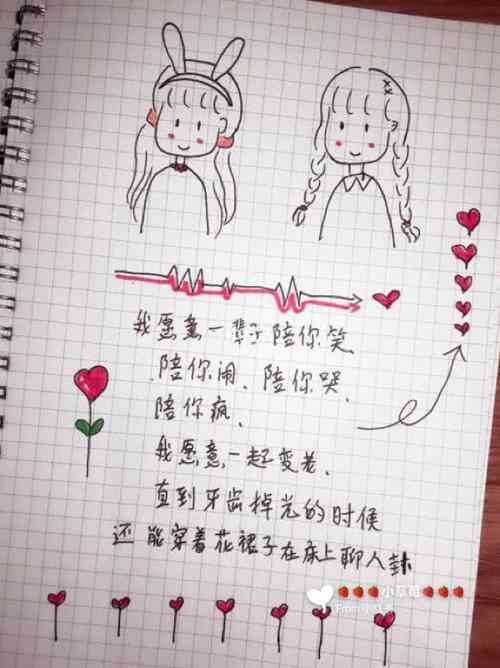 我愿意一辈子陪你笑、
陪你闹、陪你哭、
陪你疯、
我愿意一起变老、
直到牙齿掉光的时候
还能穿着花裙子在床上聊八卦
🍓🍓🍓小草莓🍓🍓🍓
From小红书